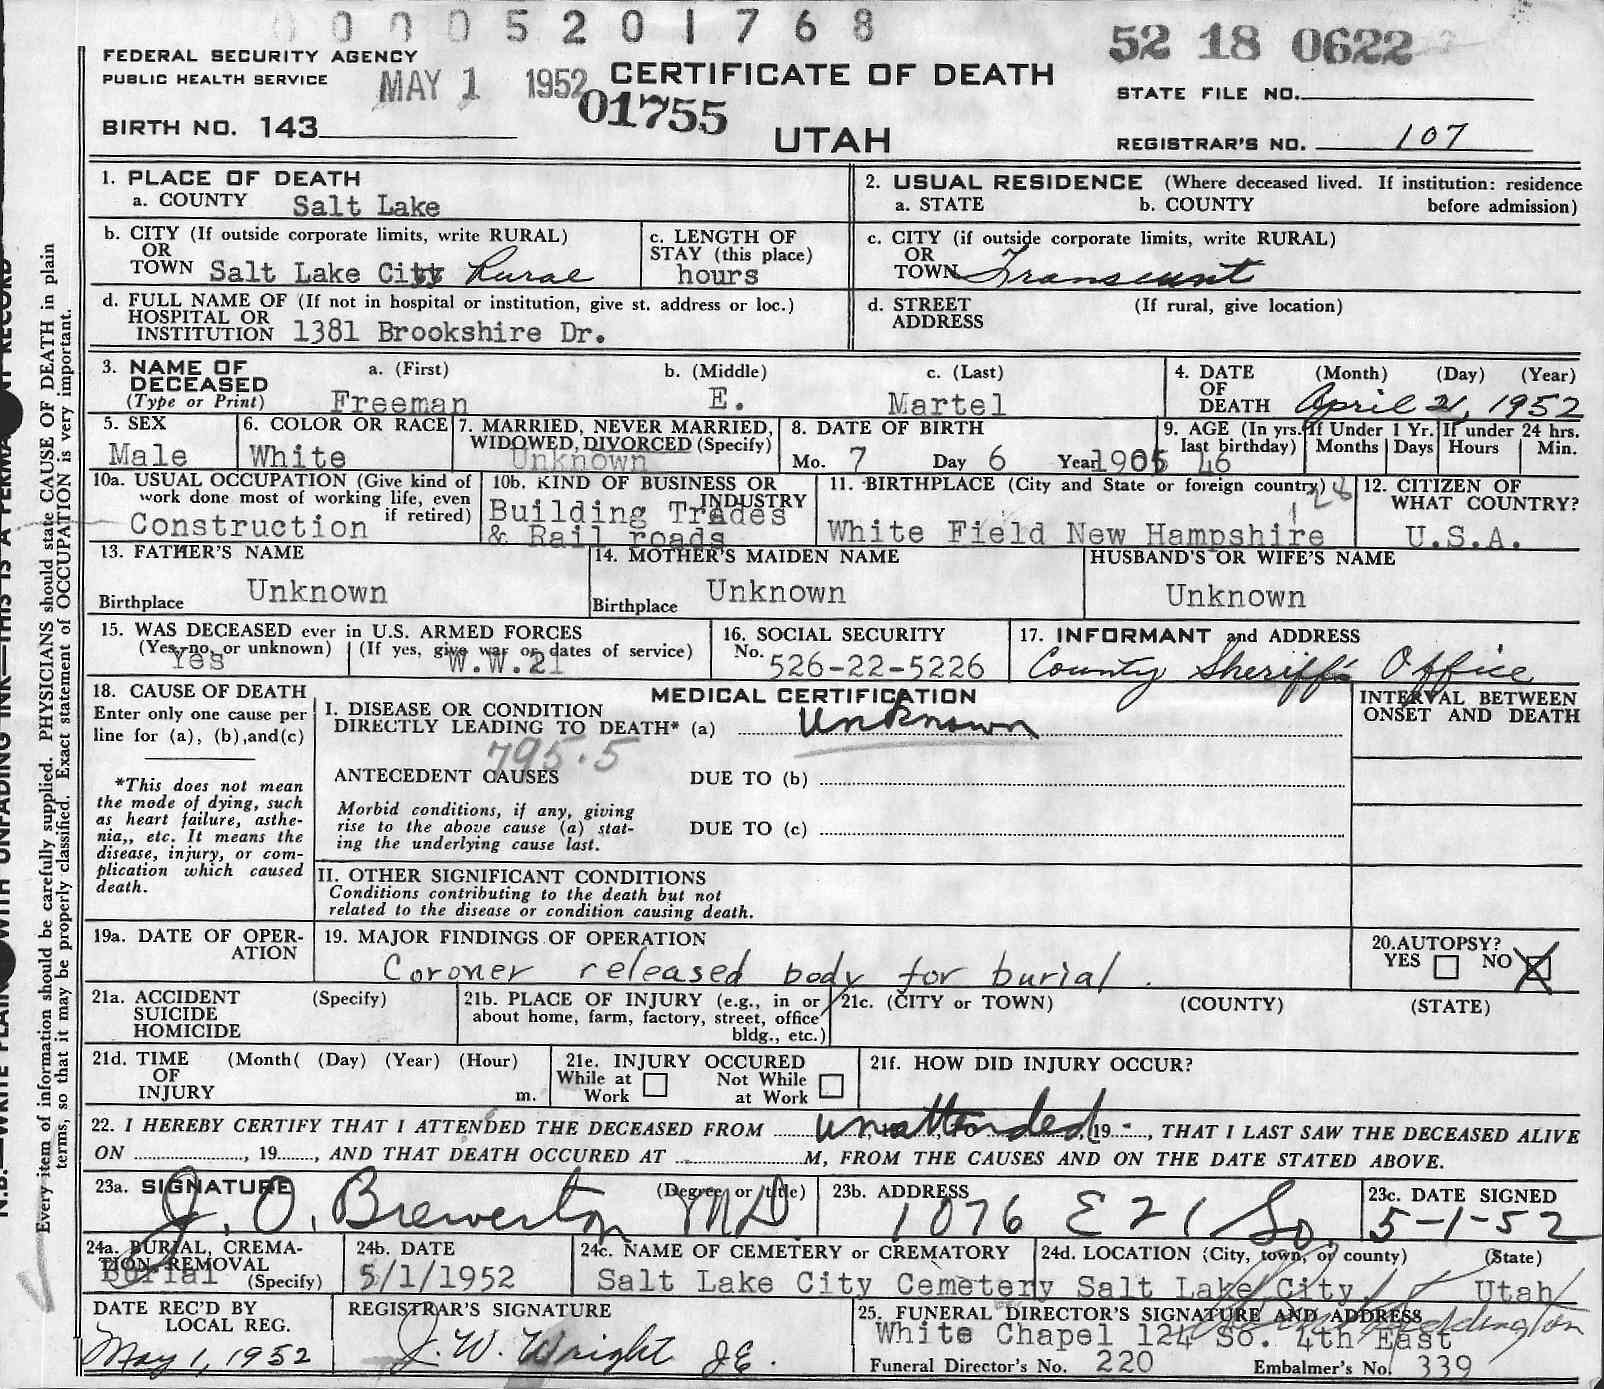 0 0 0 0 5 2 0 1 7 6 8
52 18 0622
FEDERAL SECURITY AGENCY
PUBLIC HEALTH SERVICE
MAY 1 1952
CERTIFICATE OF DEATH
01755
STATE FILE NO.
BIRTH NO. 143
UTAH
REGISTRAR'S NO. 107
1. PLACE OF DEATH
a. COUNTY Salt Lake
2. USUAL RESIDENCE (Where deceased lived. If institution: residence
a. STATE b. COUNTY before admission)
b. CITY (If outside corporate limits, write RURAL)
OR
TOWN Salt Lake City Rural
c. LENGTH OF
STAY (this place)
hours
c. CITY (if outside corporate limits, write RURAL)
OR
TOWN Transcient
d. FULL NAME OF (If not in hospital or institution, give st. address or loc.)
HOSPITAL OR
INSTITUTION 1381 Brookshire Dr.
d. STREET (If rural, give location)
ADDRESS
3. NAME OF
DECEASED
(Type or Print)
a. (First) b. (Middle) c. (Last)
Freeman E. Martel
4. DATE (Month) (Day) (Year)
OF
DEATH April 21, 1952
5. SEX
Male
6. COLOR OR RACE
White
7. MARRIED, NEVER MARRIED,
WIDOWED, DIVORCED (Specify)
Unknown
8. DATE OF BIRTH
Mo. 7 Day 6 Year 1905
9. AGE (In yrs. last birthday) 46
If Under 1 Yr. Months Days
If under 24 hrs. Hours Min.
10a. USUAL OCCUPATION (Give kind of
work done most of working life, even
if retired)
Construction
10b. KIND OF BUSINESS OR
INDUSTRY
Building Trades
& Rail roads
11. BIRTHPLACE (City and State or foreign country)
White Field New Hampshire
12. CITIZEN OF
WHAT COUNTRY?
U.S.A.
13. FATHER'S NAME
Unknown
Birthplace
14. MOTHER'S MAIDEN NAME
Unknown
Birthplace
HUSBAND'S OR WIFE'S NAME
Unknown
15. WAS DECEASED ever in U.S. ARMED FORCES
(Yes, no, or unknown) (If yes, give war or dates of service)
Yes W.W.21
16. SOCIAL SECURITY
No. 526-22-5226
17. INFORMANT and ADDRESS
County Sheriff's Office
18. CAUSE OF DEATH
Enter only one cause per
line for (a), (b), and (c)
*This does not mean
the mode of dying, such
as heart failure, asthe-
nia,, etc. It means the
disease, injury, or com-
plication which caused
death.
MEDICAL CERTIFICATION
I. DISEASE OR CONDITION
DIRECTLY LEADING TO DEATH* (a) Unknown
795.5
ANTECEDENT CAUSES DUE TO (b)
Morbid conditions, if any, giving
rise to the above cause (a) stat-
ing the underlying cause last.
DUE TO (c)
II. OTHER SIGNIFICANT CONDITIONS
Conditions contributing to the death but not
related to the disease or condition causing death.
INTERVAL BETWEEN
ONSET AND DEATH
19a. DATE OF OPER-
ATION
19. MAJOR FINDINGS OF OPERATION
Coroner released body for burial.
20. AUTOPSY?
YES NO
21a. ACCIDENT (Specify)
SUICIDE
HOMICIDE
21b. PLACE OF INJURY (e.g., in or
about home, farm, factory, street, office
bldg., etc.)
21c. (CITY or TOWN) (COUNTY) (STATE)
21d. TIME (Month( (Day) (Year) (Hour)
OF
INJURY m.
21e. INJURY OCCURED
While at Work
Not While at Work
21f. HOW DID INJURY OCCUR?
22. I HEREBY CERTIFY THAT I ATTENDED THE DECEASED FROM unattended, 19 , THAT I LAST SAW THE DECEASED ALIVE
ON , 19 , AND THAT DEATH OCCURED AT M, FROM THE CAUSES AND ON THE DATE STATED ABOVE.
23a. SIGNATURE (Degree or title)
J. O. Brewerton MD.
23b. ADDRESS
1076 E 21 So
23c. DATE SIGNED
5-1-52
24a. BURIAL, CREMA-
TION, REMOVAL
(Specify)
Burial
24b. DATE
5/1/1952
24c. NAME OF CEMETERY or CREMATORY
Salt Lake City Cemetery
24d. LOCATION (City, town, or county) (State)
Salt Lake City, Utah
DATE REC'D BY
LOCAL REG.
May 1, 1952
REGISTRAR'S SIGNATURE
J. W. Wright JE.
25. FUNERAL DIRECTOR'S SIGNATURE AND ADDRESS
White Chapel 124 So. 4th East
Funeral Director's No. 220 Embalmer's No. 339
Every item of information should be carefully supplied. PHYSICIANS should state CAUSE OF DEATH in plain
terms, so that it may be properly classified. Exact statement of OCCUPATION is very important.